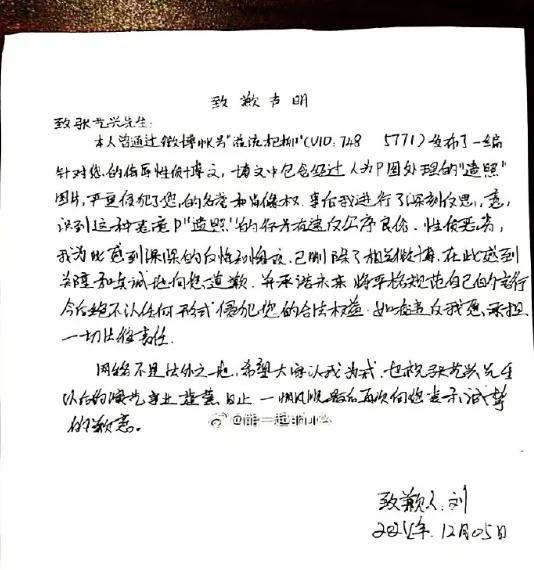 致歉声明
致张艺兴先生:
本人曾通过微博账号"逆流杞柳"(UID:748 5771)发布了一编
针对您的侮辱性侦博文,博文中包含经过人为P图处理的"遗照"
图片,严重侵犯了您的名誉和肖像权.事后我进行了深刻反思,意
识到这种恶意P"遗照"的行为有违反公序良俗.性侦恶劣,
我为此感到深深的自恼和悔改.已删除了相关微博.在此感到
并真诚地向您道歉.并承诺未来将严格规范自己的言行
今后绝不以任何形式侵犯您的合法权益.如有违反我愿承担
一切法律责任.
网络不是法外之地,希望大家以我为戒.也祝张艺兴先生
以后的演艺事业蒸蒸日上一帆风顺最后再次向您表示诚挚
的歉意。
致歉人:刘
12月05日